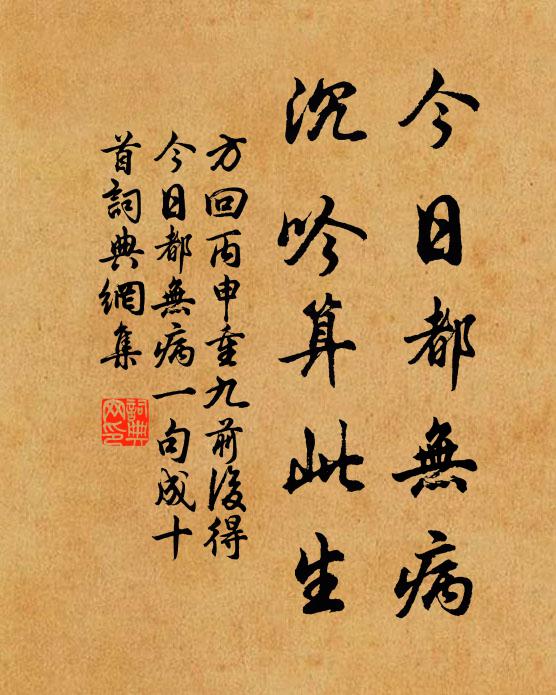 今日都無病
沉吟算此生
方回丙申重九前後得
今日都無病一句成十
首詞典網集
詞典
网印